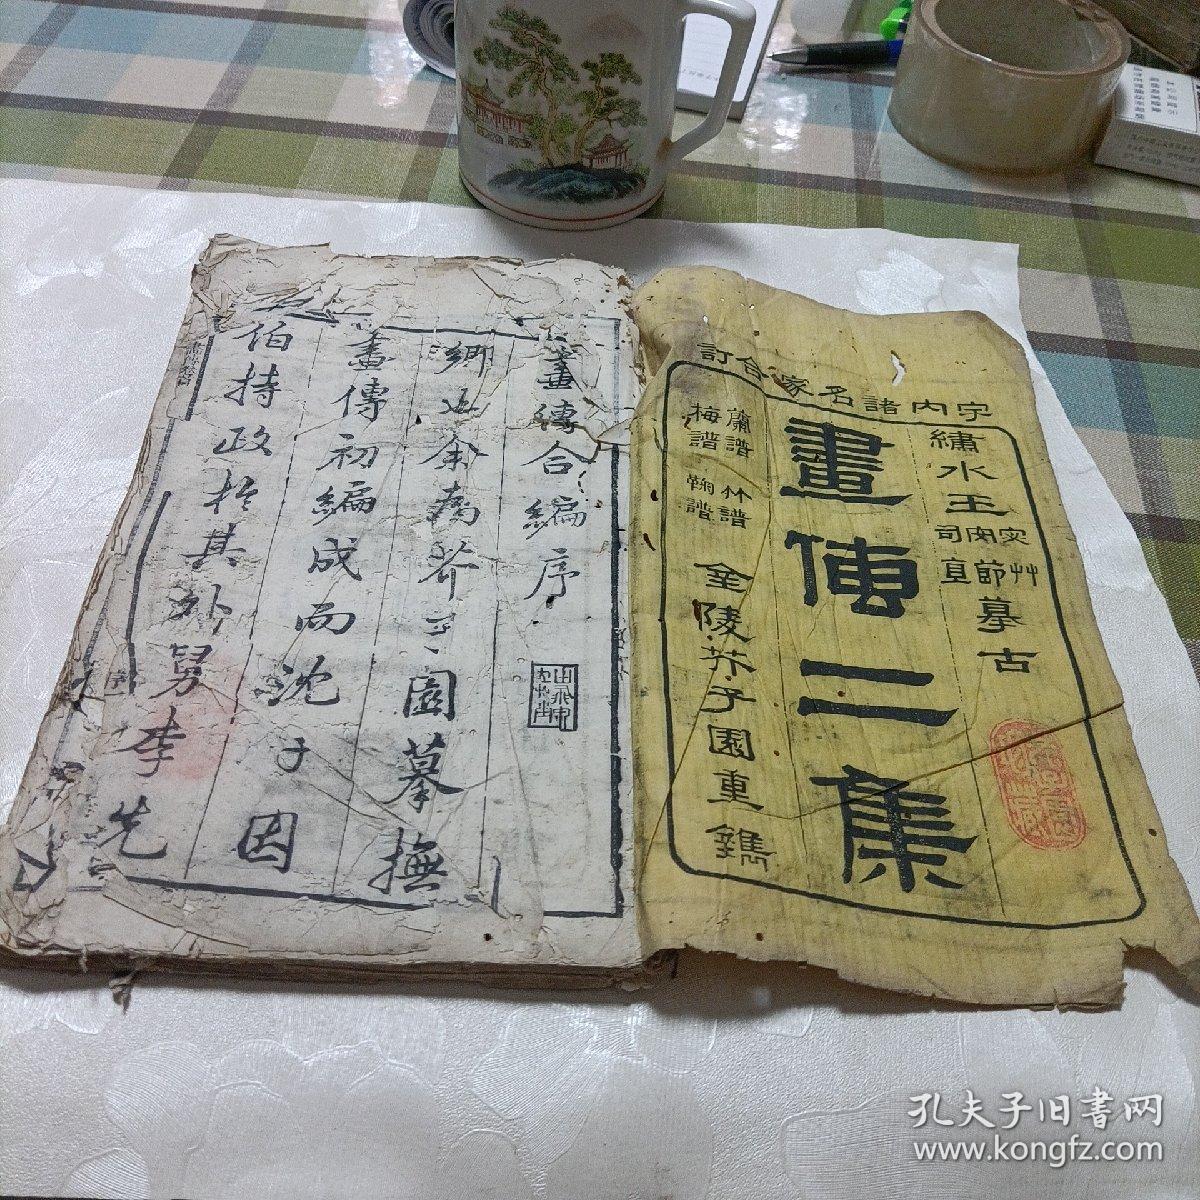 宇內諸名家合訂
繡水王
宓草
安節
司直
摹古
畫傳二集
蘭譜 竹譜
梅譜 鞠譜
金陵芥子園重鐫
畫傳合編序
畫傳初編成而沈子因
伯持政於其外舅李先
孔夫子旧书网
www.kongfz.com